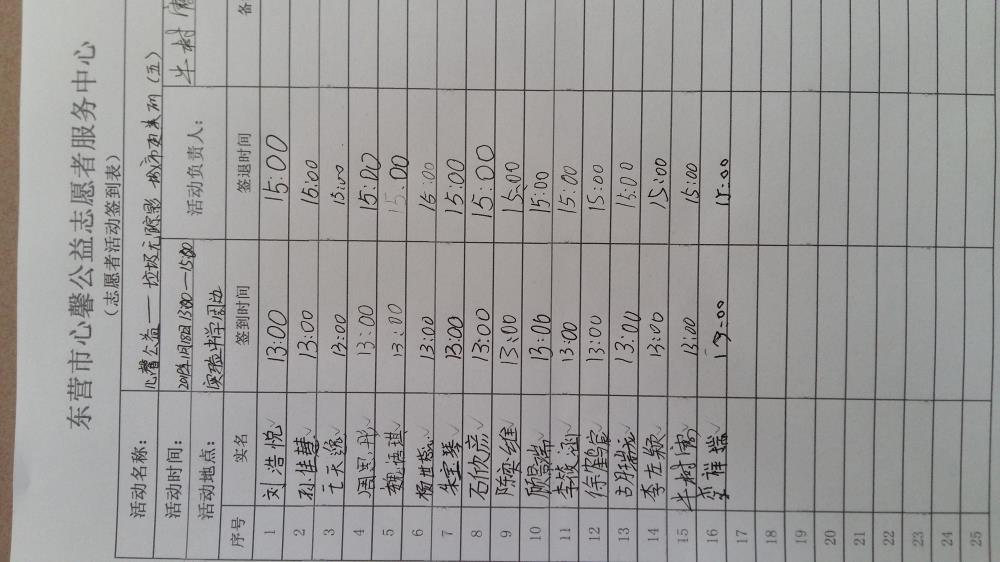 东营市心馨公益志愿者服务中心
(志愿者活动签到表)
活动名称: 心馨公益——垃圾无踪影 城市更美丽（五）
活动时间: 13:00—15:00 活动负责人: 牛树
活动地点: 实验中学周边
序号 实名 签到时间 签退时间 备
1 刘浩悦 13:00 15:00
2 孙佳慧 13:00 15:00
3 天逸 13:00 15:00
4 周思彤 13:00 15:00
5 魏 琪 13:00 15:00
6 杨世 13:00 15:00
7 朱宝琴 13:00 15:00
8 石欣彦 13:00 15:00
9 陈奕维 13:00 15:00
10 顾 瑞 13:00 15:00
11 李筱涵 13:00 15:00
12 徐鹤宸 13:00 15:00
13 胡瑞 13:00 15:00
14 李左颖 13:00 15:00
15 牛树 13:00 15:00
16 祥瑞 13:00 15:00
17
18
19
20
21
22
23
24
25